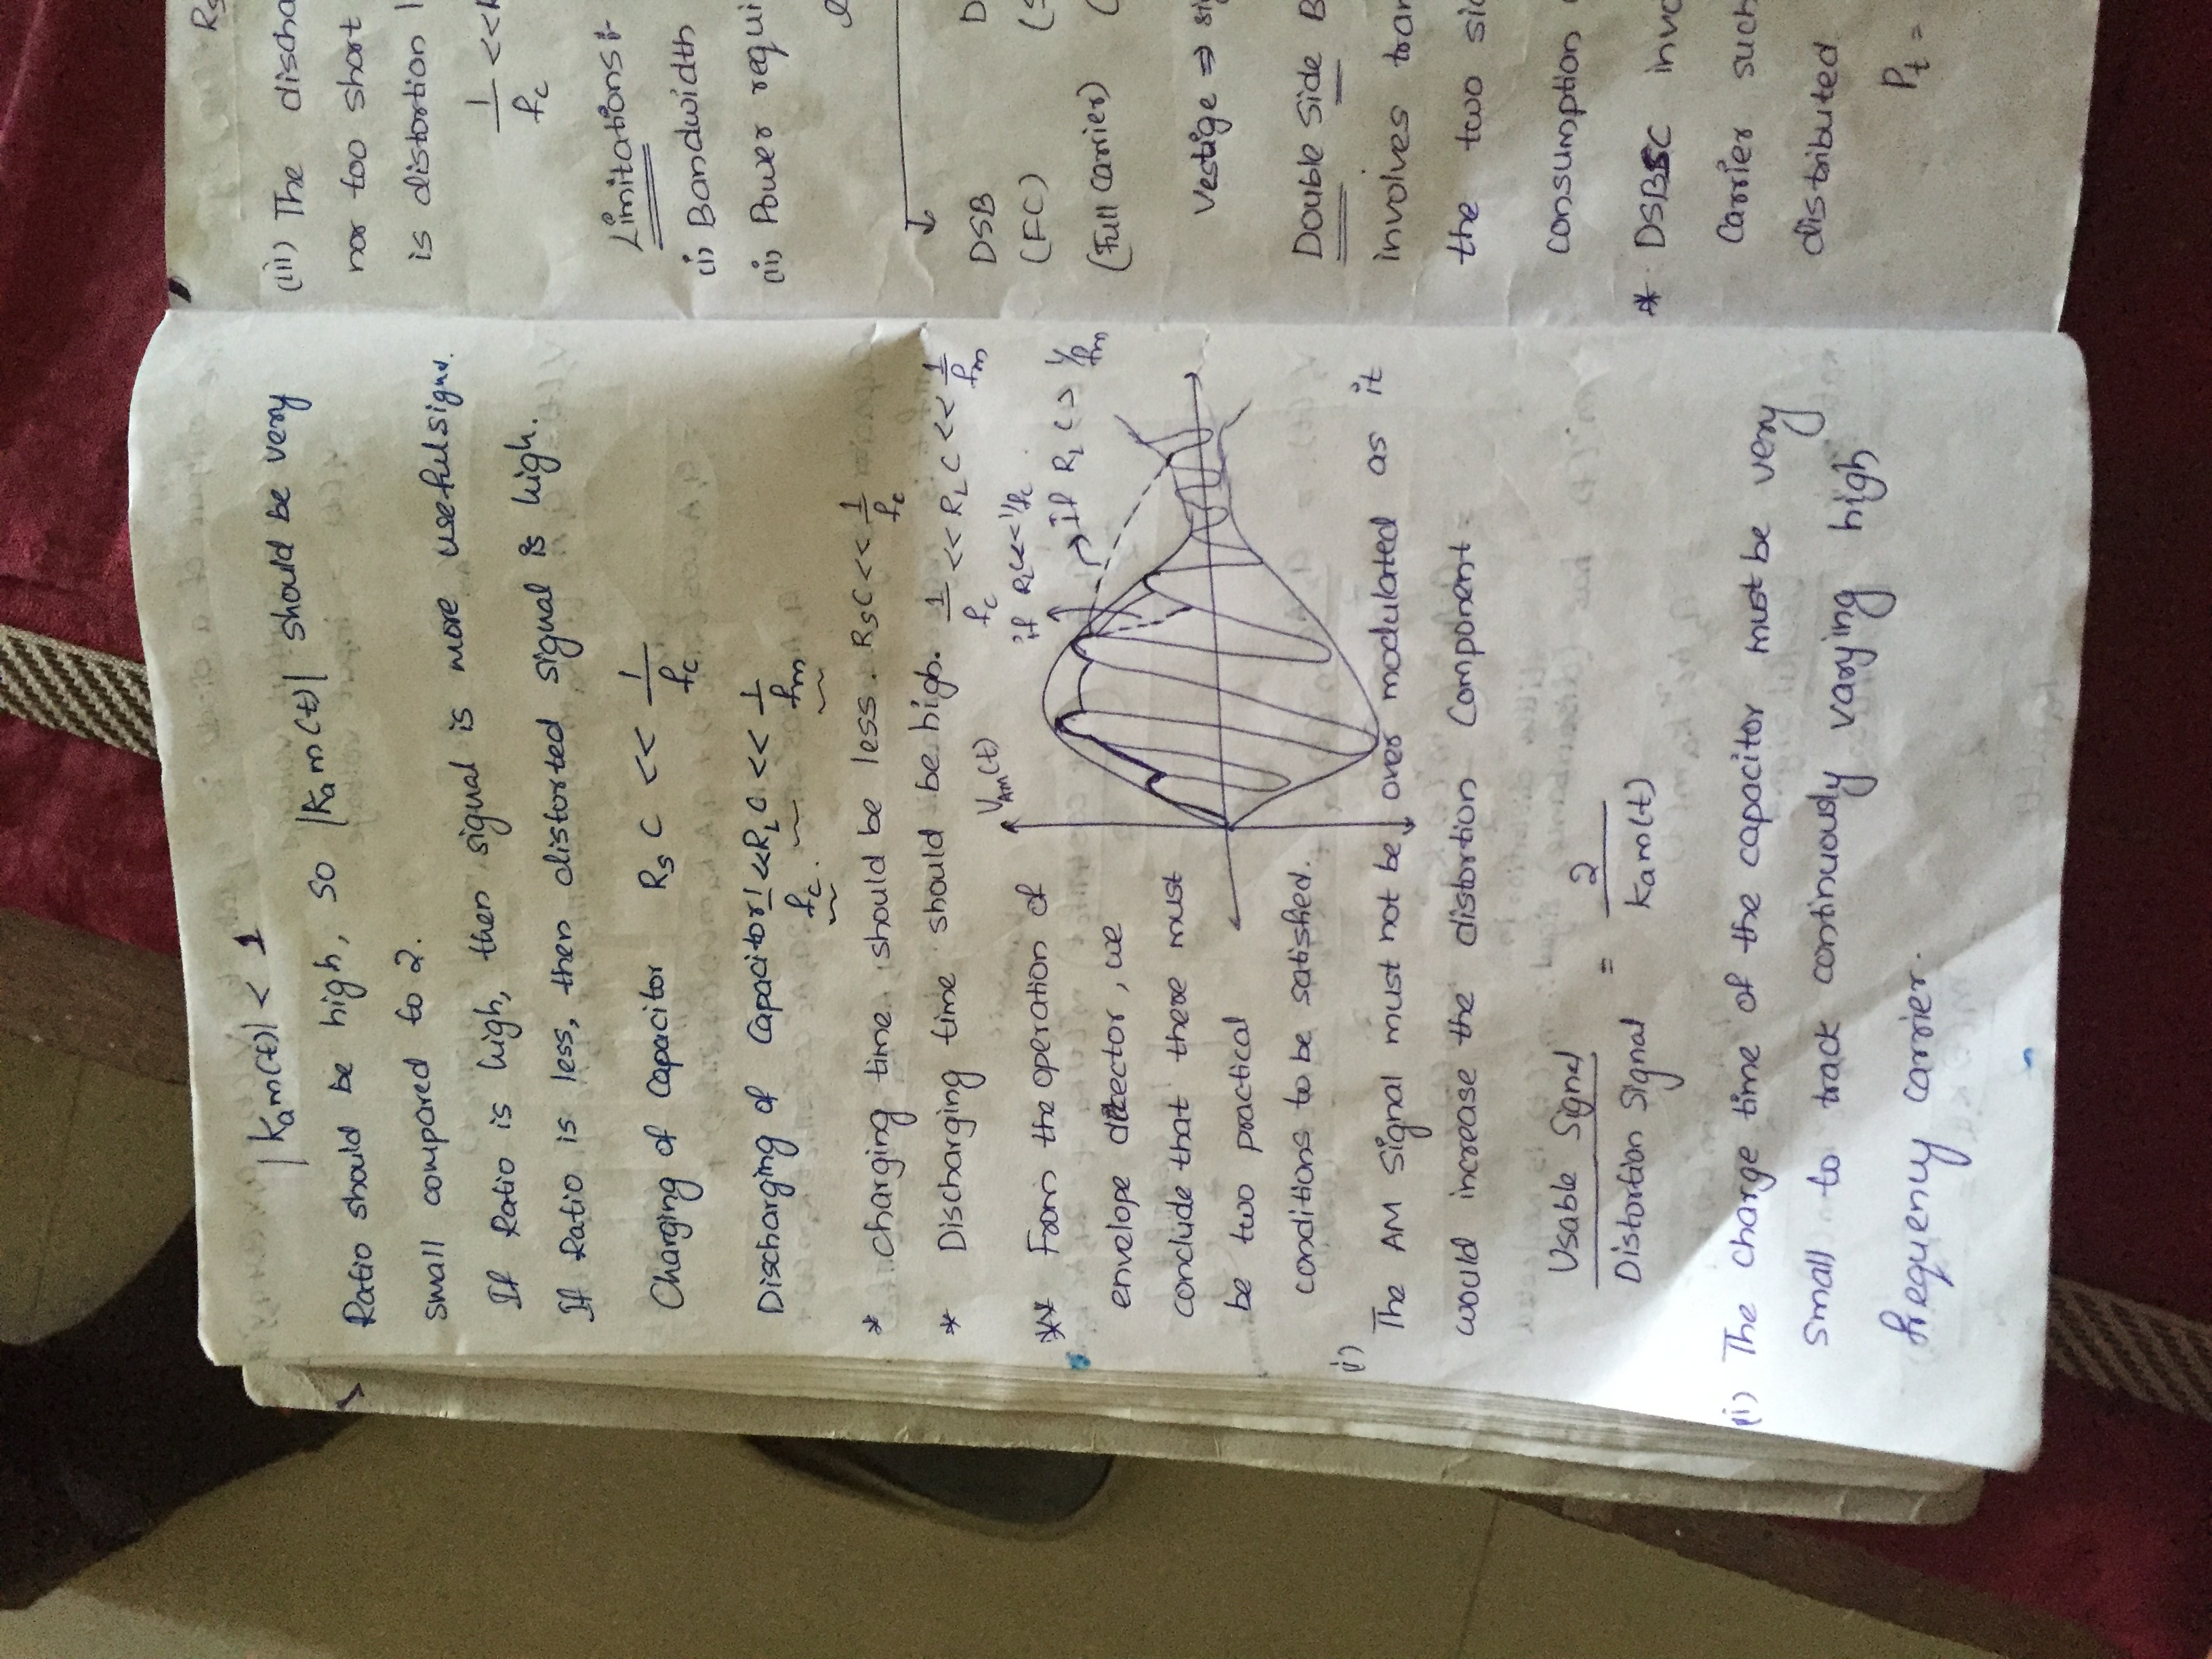 |Kam(t)| < 1
Ratio should be high, so |Kam(t)| should be very
small compared to 2.
If Ratio is high, then signal is more useful
If Ratio is less, then distorted signal is high.
Charging of capacitor RsC << 1/fc
Discharging of capacitor 1/fc << RLC << 1/fm
* charging time should be less. RsC << 1/fc
* Discharging time should be high. 1/fc << RLC << 1/fm
VAM(t)
if RLC<<1/fc
if RLC > 1/fm
** From the operation of
envelope detector, we
conclude that there must
be two practical
conditions to be satisfied.
(i)
The AM Signal must not be over modulated as it
would increase the distortion component
Usable Signal / Distortion Signal = 2 / Kam(t)
(i) The charge time of the capacitor must be very
small to track continuously varying high
frequency carrier.
Rs
(iii) The discha
nor too short
is distortion l
1/fc <<R
Limitations :-
(i) Bandwidth
(ii) Power requi
DSB D
(FC)
(Full carrier) (
Vestige ⇒ si
Double Side B
involves tran
the two sid
consumption
* DSBSC invo
carrier such
distributed
Pt =